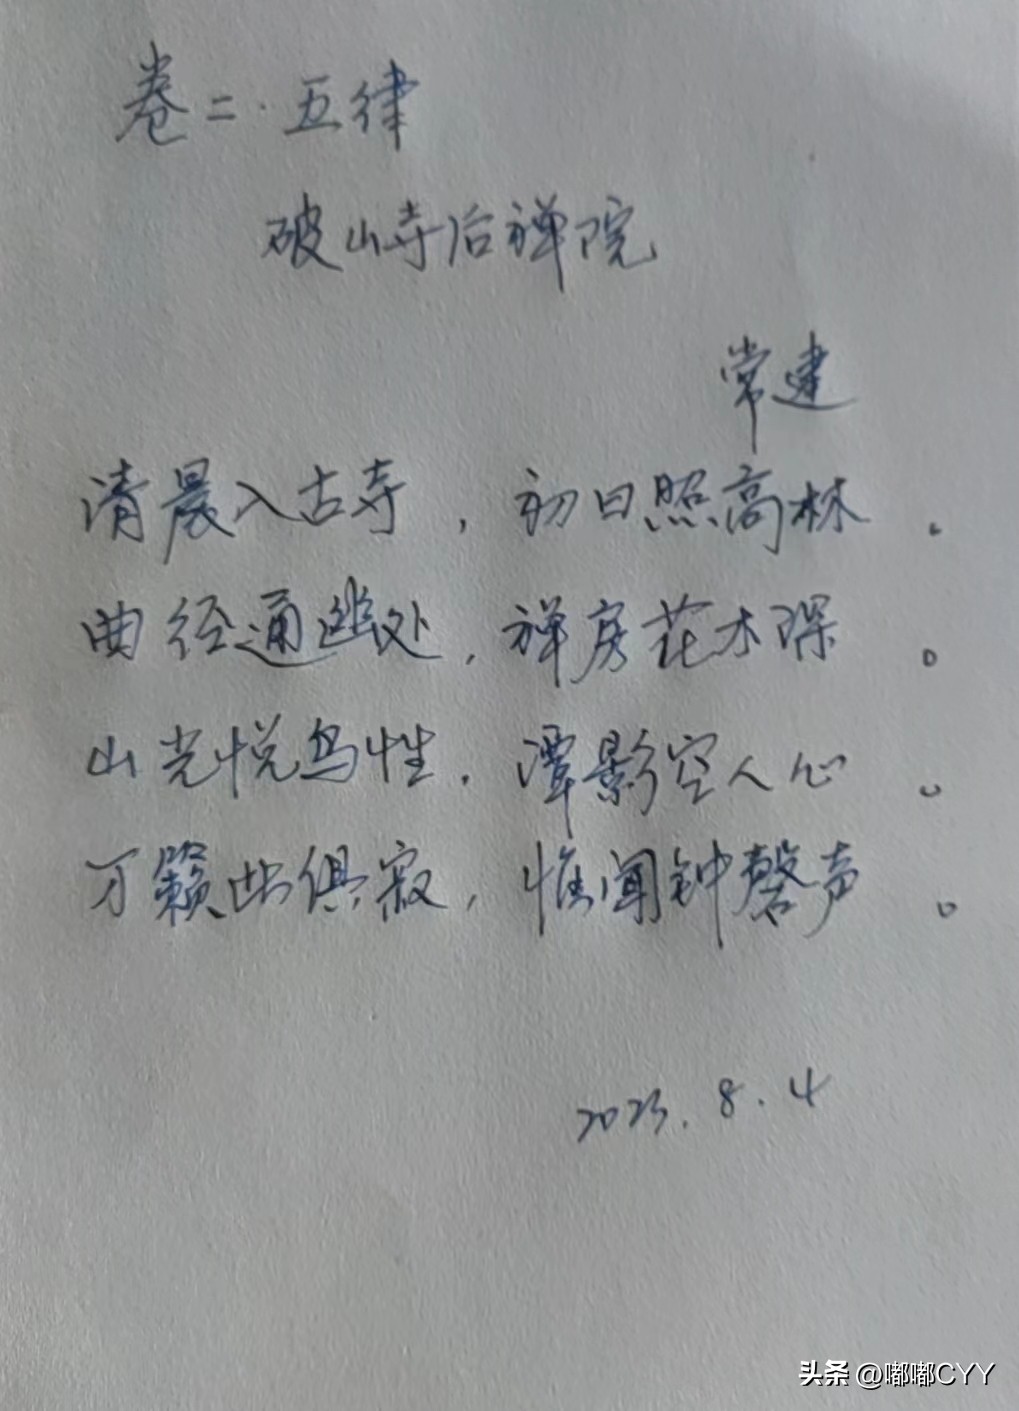 卷二·五律
破山寺后禅院
常建
清晨入古寺，初日照高林。
曲径通幽处，禅房花木深。
山光悦鸟性，潭影空人心。
万籁此俱寂，惟闻钟磬声。
2023.8.4
头条 @嘟嘟CYY